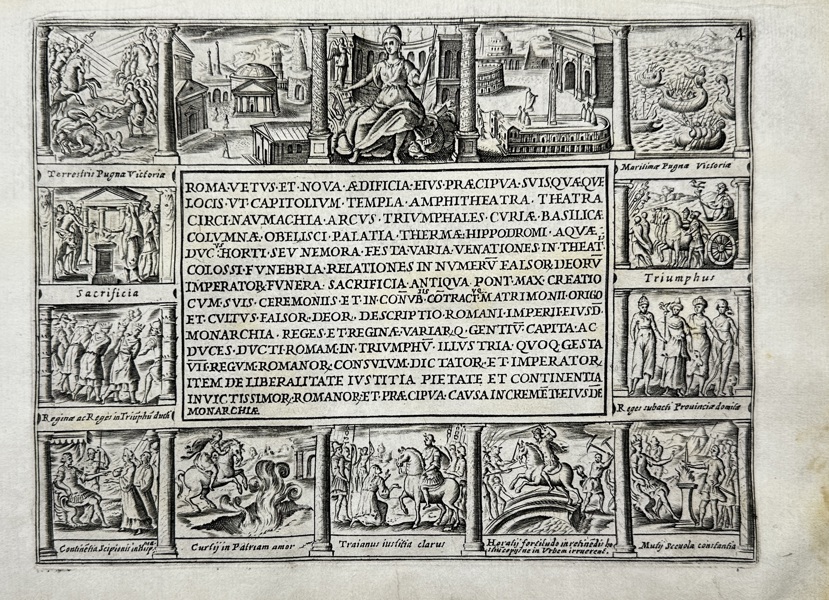 4
Terrestris Pugnæ Victoriæ
Maritimæ Pugnæ Victoriæ
ROMA·VETUS·ET·NOVA·ÆDIFICIA·EIVS·PRÆCIPVA·SVISQVÆQVE
LOCIS·VT·CAPITOLIVM·TEMPLA·AMPHITHEATRA·THEATRA
CIRCI·NAVMACHIA·ARCVS·TRIVMPHALES·CVRIÆ·BASILICÆ
COLVMNÆ·OBELISCI·PALATIA·THERMÆ·HIPPODROMI·AQUÆ
DVCVS·HORTI·SEV NEMORA·FESTA·VARIA·VENATIONES·IN·THEAT·
COLOSSI·FVNEBRIA·RELATIONES IN NVMERV̄ FALSOR·DEORV̄
IMPERATOR·FVNERA·SACRIFICIA·ANTIQVA·PONT·MAX·CREATIO
CVM·SVIS·CEREMONIIS·ET·IN·CONVB·CŌTRACT·MATRIMONII·ORIGO
ET·CVLTVS·FALSOR·DEOR·DESCRIPTIO·ROMANI·IMPERII·EIVSD·
MONARCHIA·REGES·ET·REGINÆ·VARIAR·Q·GENTIV̄·CAPITA·AC
DVCES·DVCTI·ROMAM·IN·TRIVMPHV̄·ILLVSTRIA·QVOQ·GESTA
VII·REGVM·ROMANOR·CONSVLVM·DICTATOR·ET·IMPERATOR·
ITEM DE LIBERALITATE IVSTITIA PIETATE ET CONTINENTIA
INVICTISSIMOR·ROMANOR·ET·PRÆCIPVA·CAVSA·INCREMĒTI·EIVSDĒ
MONARCHIÆ
Sacrificia
Triumphus
Reginæ ac Reges in Triūphū ducti
Reges subacti Provinciæ domitæ
Continētia Scipionis in Hisp.
Curtij in Patriam amor
Traianus iustitia clarus
Horatij fortitudo in retinēdis ho
stium in Urbem irruerent.
Mutij Scevolæ constantia